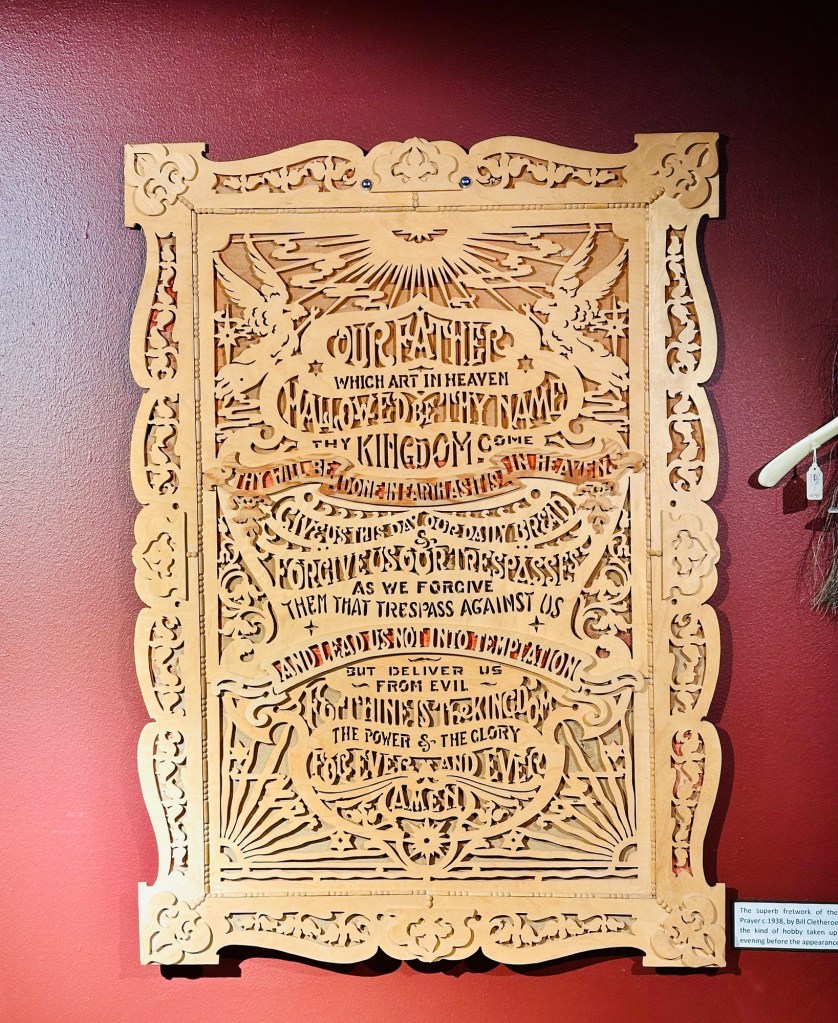 OUR FATHER
WHICH ART IN HEAVEN
HALLOWED BE THY NAME
THY KINGDOM COME
THY WILL BE DONE IN EARTH AS IT IS IN HEAVEN
GIVE US THIS DAY OUR DAILY BREAD
&
FORGIVE US OUR TRESPASSES
AS WE FORGIVE
THEM THAT TRESPASS AGAINST US
AND LEAD US NOT INTO TEMPTATION
BUT DELIVER US
FROM EVIL
FOR THINE IS THE KINGDOM
THE POWER & THE GLORY
FOR EVER AND EVER
AMEN
The superb fretwork of the
Prayer c.1938, by Bill Cletheroe
the kind of hobby taken up
evening before the appearance